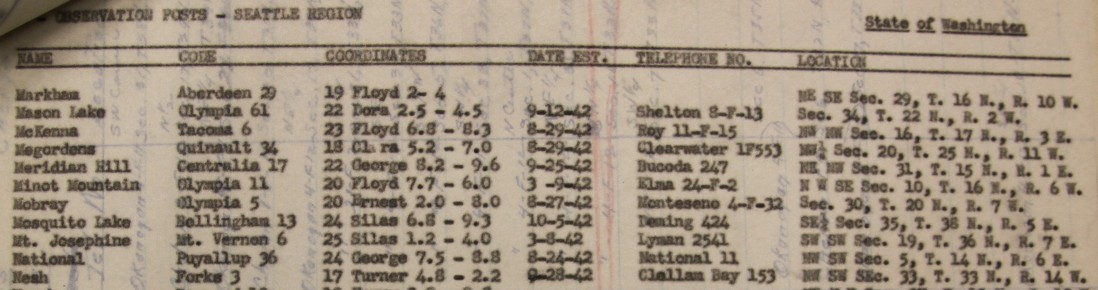 OBSERVATION POSTS - SEATTLE REGION
State of Washington
NAME CODE COORDINATES DATE EST. TELEPHONE NO. LOCATION
Markham Aberdeen 29 19 Floyd 2- 4 NE SE Sec. 29, T. 16 N., R. 10 W.
Mason Lake Olympia 61 22 Dora 2.5 - 4.5 9-12-42 Shelton 8-F-13 Sec. 34, T. 22 N., R. 2 W.
McKenna Tacoma 6 23 Floyd 6.8 - 8.3 8-29-42 Roy 11-F-15 NW NW Sec. 16, T. 17 N., R. 3 E.
Megordens Quinault 34 18 Cl ra 5.2 - 7.0 8-29-42 Clearwater 1F553 NW¼ Sec. 20, T. 25 N., R. 11 W.
Meridian Hill Centralia 17 22 George 8.2 - 9.6 9-25-42 Bucoda 247 NE NW Sec. 31, T. 15 N., R. 1 E.
Minot Mountain Olympia 11 20 Floyd 7.7 - 6.0 3 -9-42 Elma 24-F-2 N W SE Sec. 10, T. 16 N., R. 6 W.
Mobray Olympia 5 20 Ernest 2.0 - 8.0 8-27-42 Monteseno 4-F-32 Sec. 30, T. 20 N., R. 7 W.
Mosquito Lake Bellingham 13 24 Silas 6.8 - 9.3 10-5-42 Deming 424 SE¼ Sec. 35, T. 38 N., R. 5 E.
Mt. Josephine Mt. Vernon 6 25 Silas 1.2 - 4.0 3-8-42 Lyman 2541 SW SW Sec. 19, T. 36 N., R. 7 E.
National Puyallup 36 24 George 7.5 - 8.8 8-24-42 National 11 NW SW Sec. 5, T. 14 N., R. 6 E.
Neah Forks 3 17 Turner 4.8 - 2.2 9-28-42 Clallam Bay 153 NW SW SEc. 33, T. 33 N., R. 14 W.